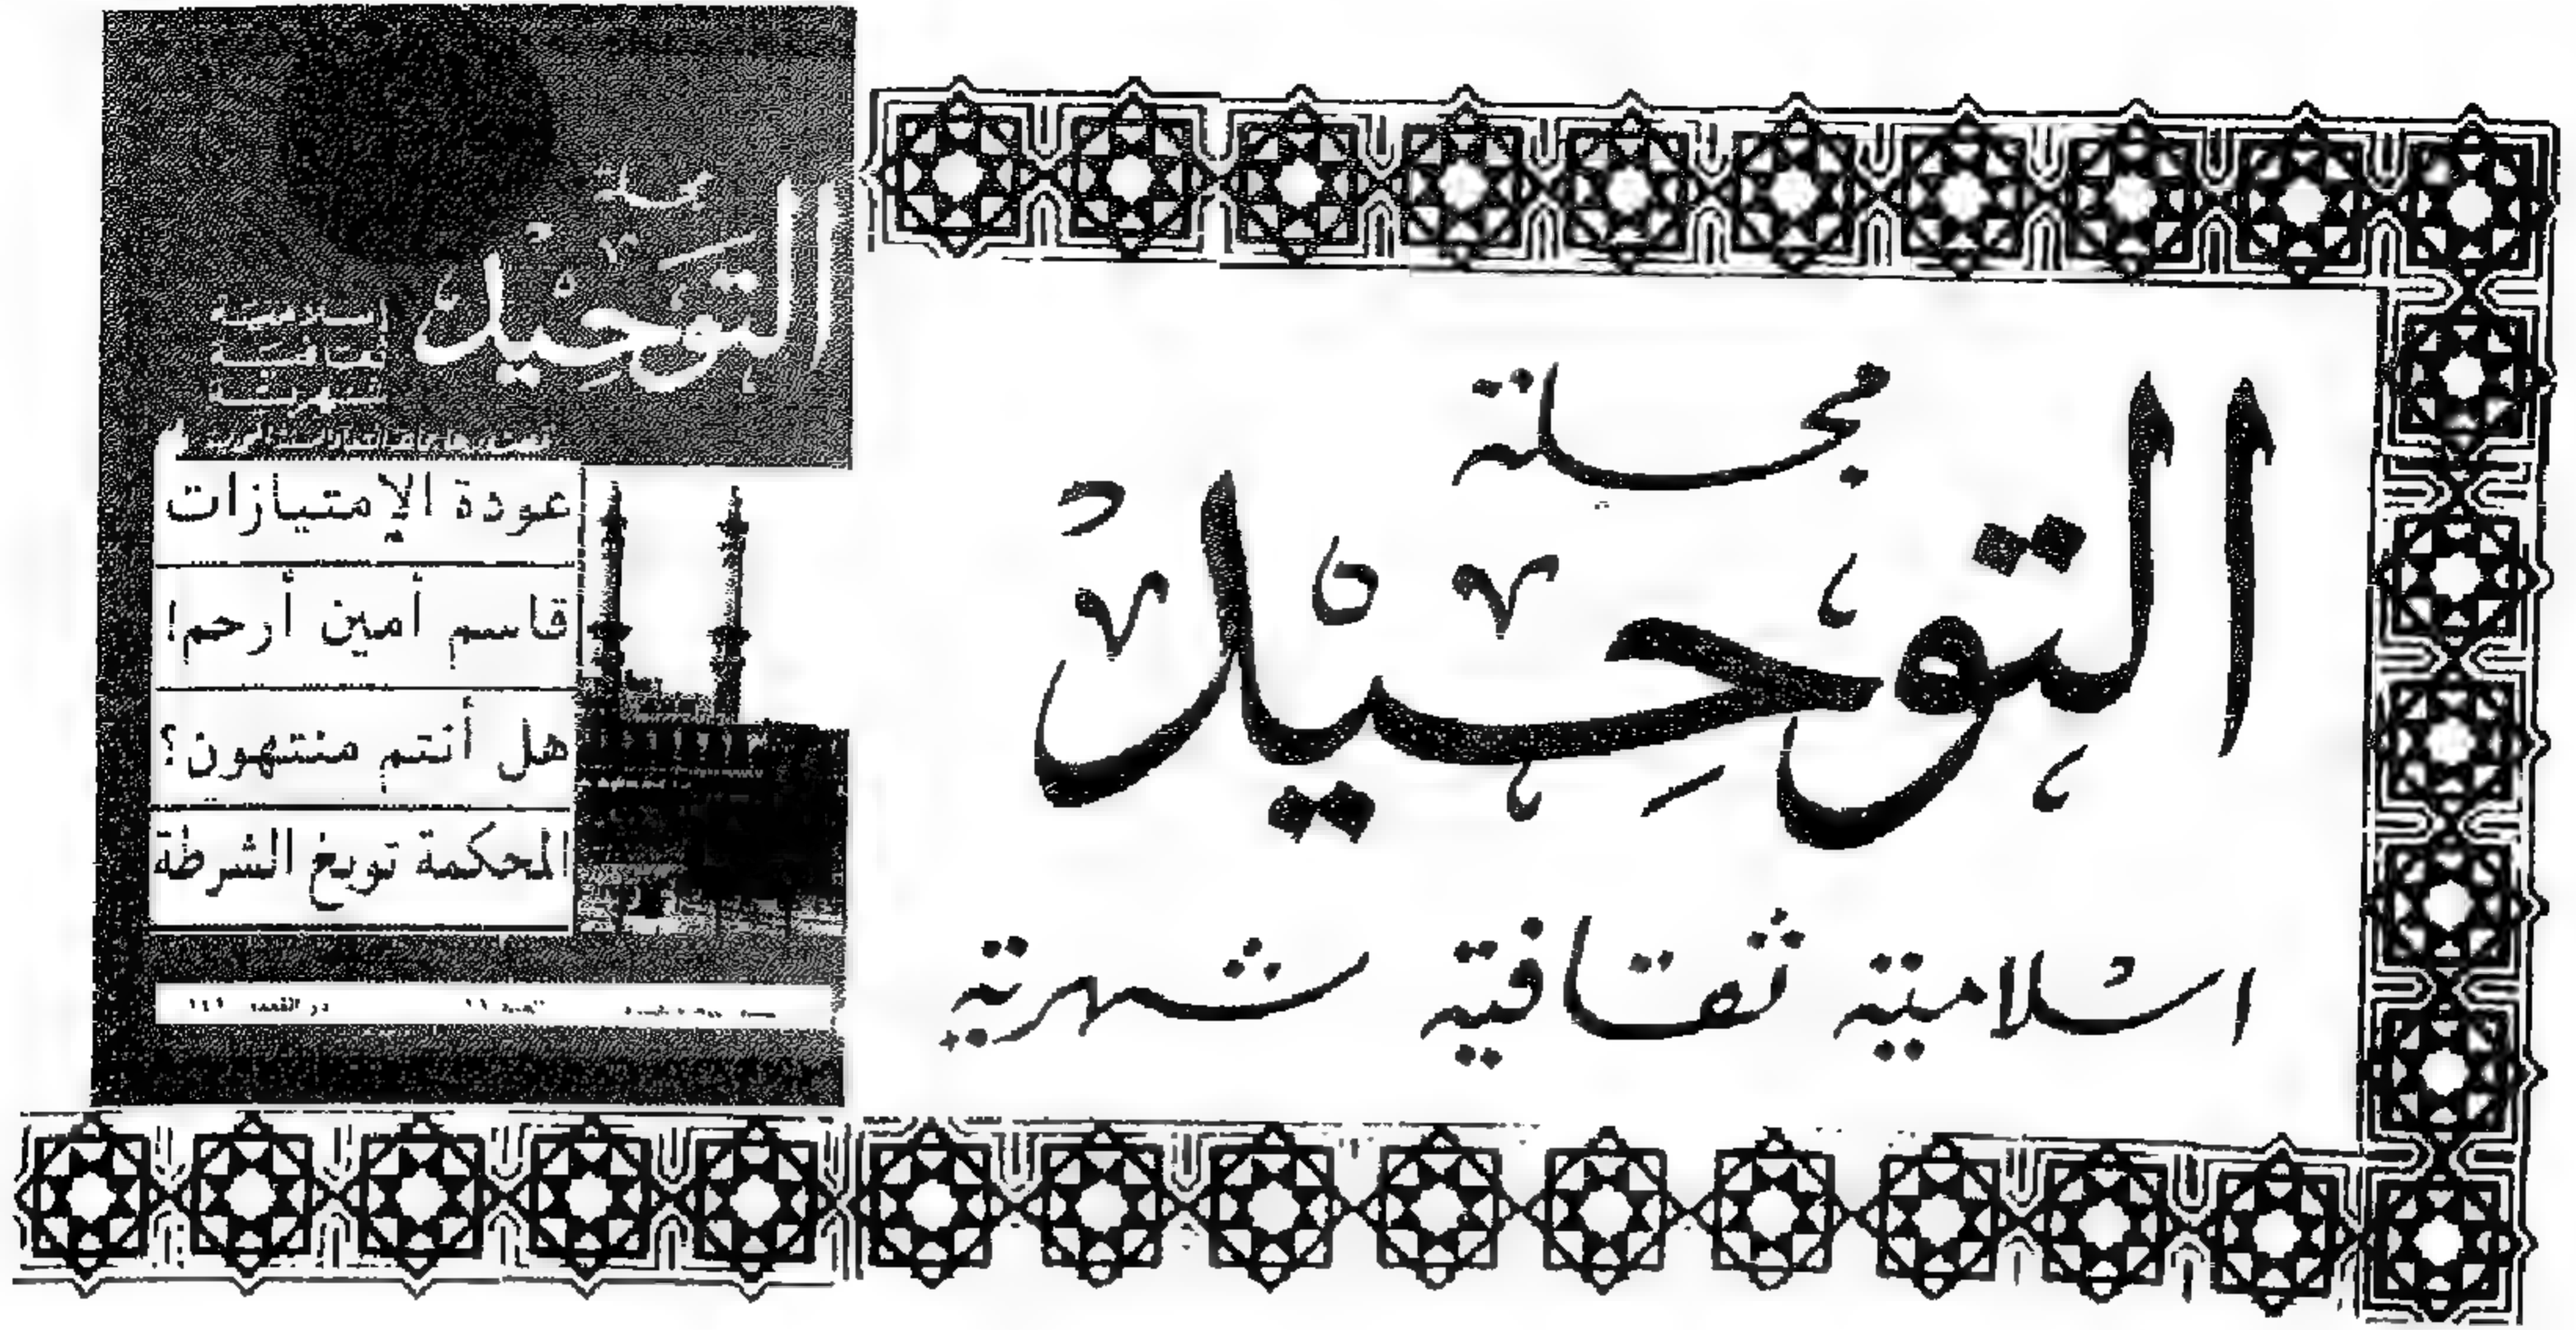 مجلة
التوحيد
اسلامية ثقافية شهرية
مجلة
التوحيد
إسلامية
ثقافية
شهرية
عودة الإمتيازات
قاسم أمين أرحم!
هل أنتم منتهون؟
المحكمة توبخ الشرطة